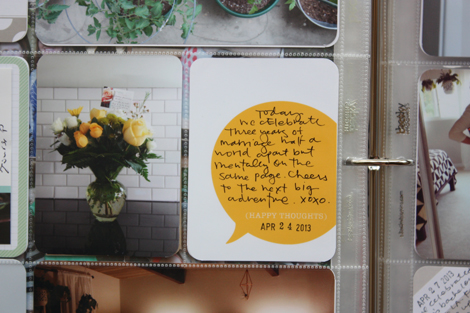 Today
we celebrate
three years of
marriage half a
world apart but
mentally on the
same page. Cheers
to the next big
adventure. xoxo.
(HAPPY THOUGHTS)
APR 24 2013
APR 29 2013
celebrating